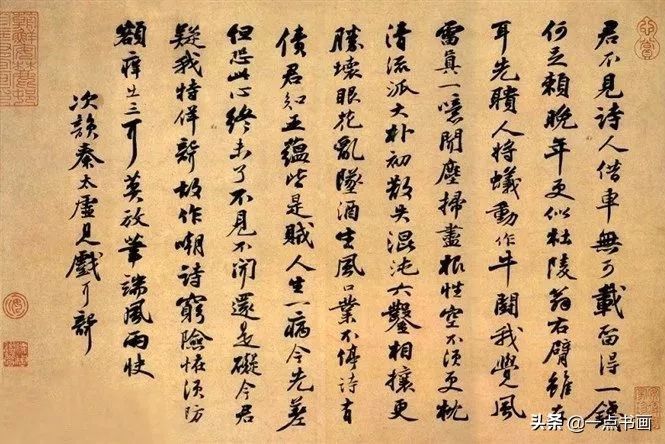 君不見詩人借車無可載留得一錢
何足賴晚年更似杜陵翁右臂雖存
耳先聵人將蟻動作牛鬬我覺風
雷真一噫聞塵掃盡根性空不須更枕
清流派大朴初散失混沌六鑿相攘更
勝壞眼花亂墜酒生風口業不停詩有
債君知五蘊皆是賊人生一病今先差
但恐此心終未了不見不聞還是礙今君
疑我特佯聾故作嘲詩窮險怪須防
額癢出三耳莫放筆端風雨快
次韻秦太虛見戲耳聾
头条 @一点书画